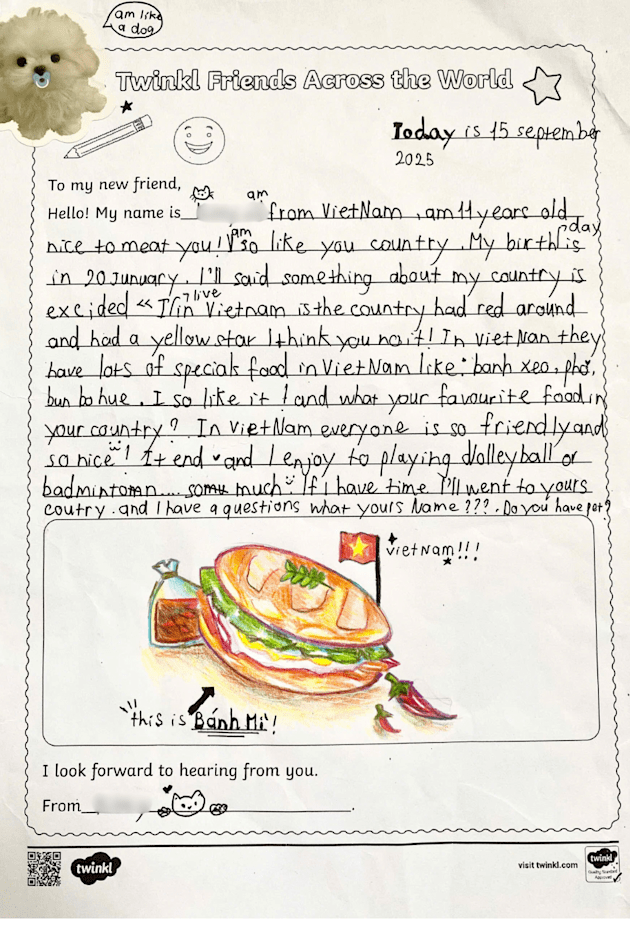 am like
a dog
Twinkl Friends Across the World
Today is 15 september
2025
To my new friend,
am
Hello! My name is from VietNam , am 11 years old,
nice to meat you! I am so like you country . My birthday is
in 20 Junuary. I'll said something about my country is
excided “ I live in Vietnam is the country had red around
and had a yellow star I think you no it! In VietNan they
have lots of specials food in VietNam like: banh xeo, phở,
bun bo hue . I so like it ! and what your favourite food in
your country? In VietNam everyone is so friendly and
so nice ! It end and I enjoy to playing volleyball or
badmintomn.... somu much If I have time I'll went to yours
coutry . and I have a questions what yours Name ??? . Do you have pet?
VietNam!!!
this is Bánh Mì !
I look forward to hearing from you.
From
twinkl
visit twinkl.com
twinkl
Quality Standard
Approved